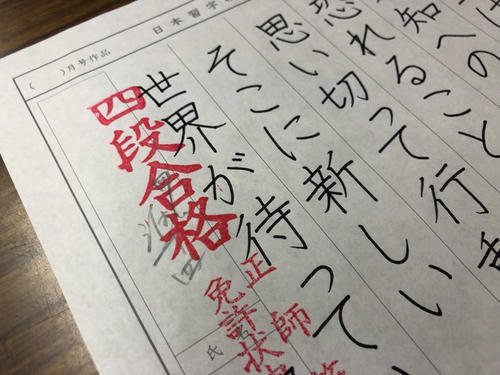 日本習字
( )月号作品
知への
恐れること
思い切って行き
そこに新しい
世界が待って
四段合格
正師
免許状
氏